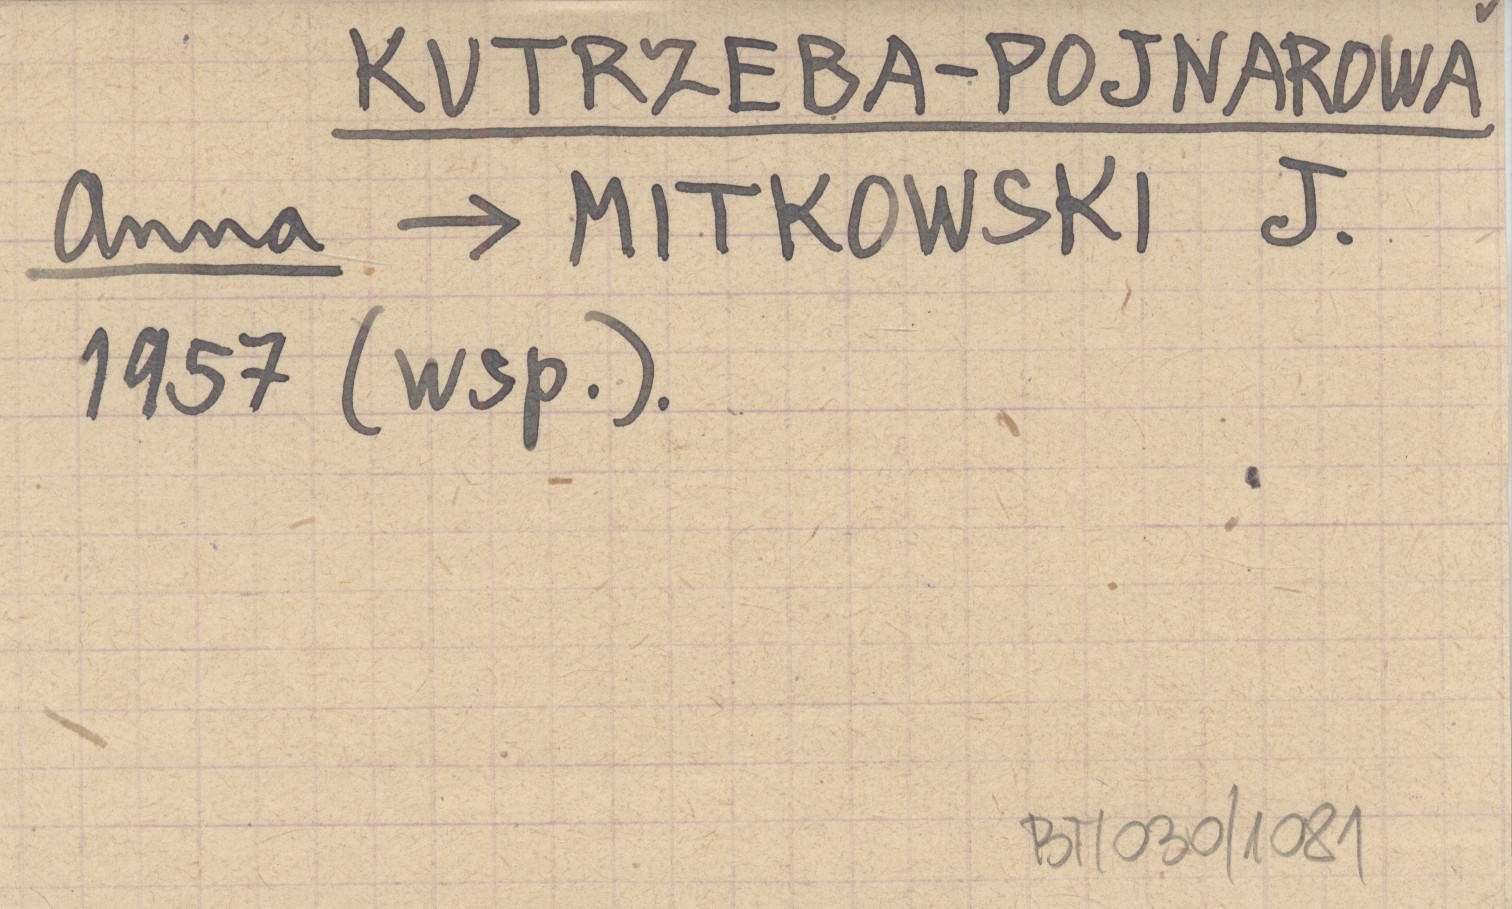 KUTRZEBA-POJNAROWA
Anna → MITKOWSKI J.
1957 (wsp.).
BT/030/1081